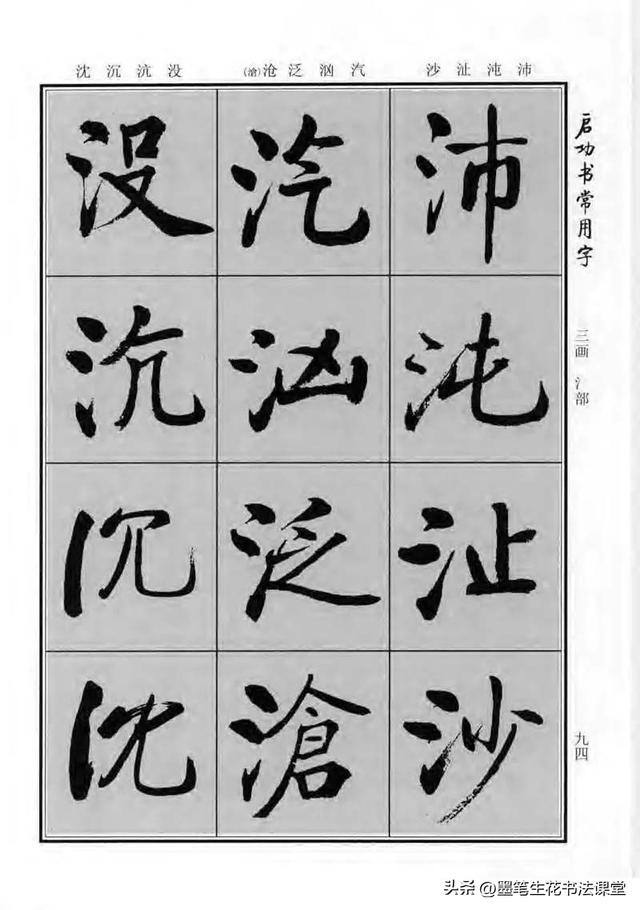 启功书常用字
三画 氵部
九四
沛沌沚沙 汽汹泛沧(滄) 没沆沉沈
沛沌沚沙
汽汹泛滄
没沆沉沈
头条 @墨笔生花书法课堂